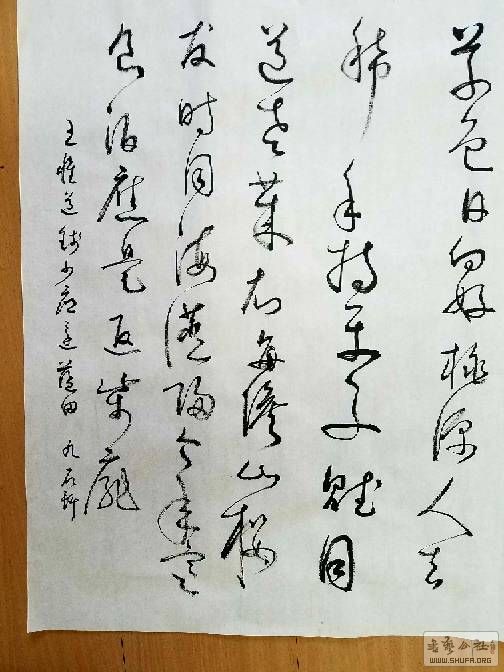 草色日向好桃源人去
稀手持平子賦目
送老萊衣每候山櫻
发時同海燕歸今年寒
食酒應是返柴扉
王維送錢少府還藍田 九石
书艺公社
WWW.SHUFA.ORG